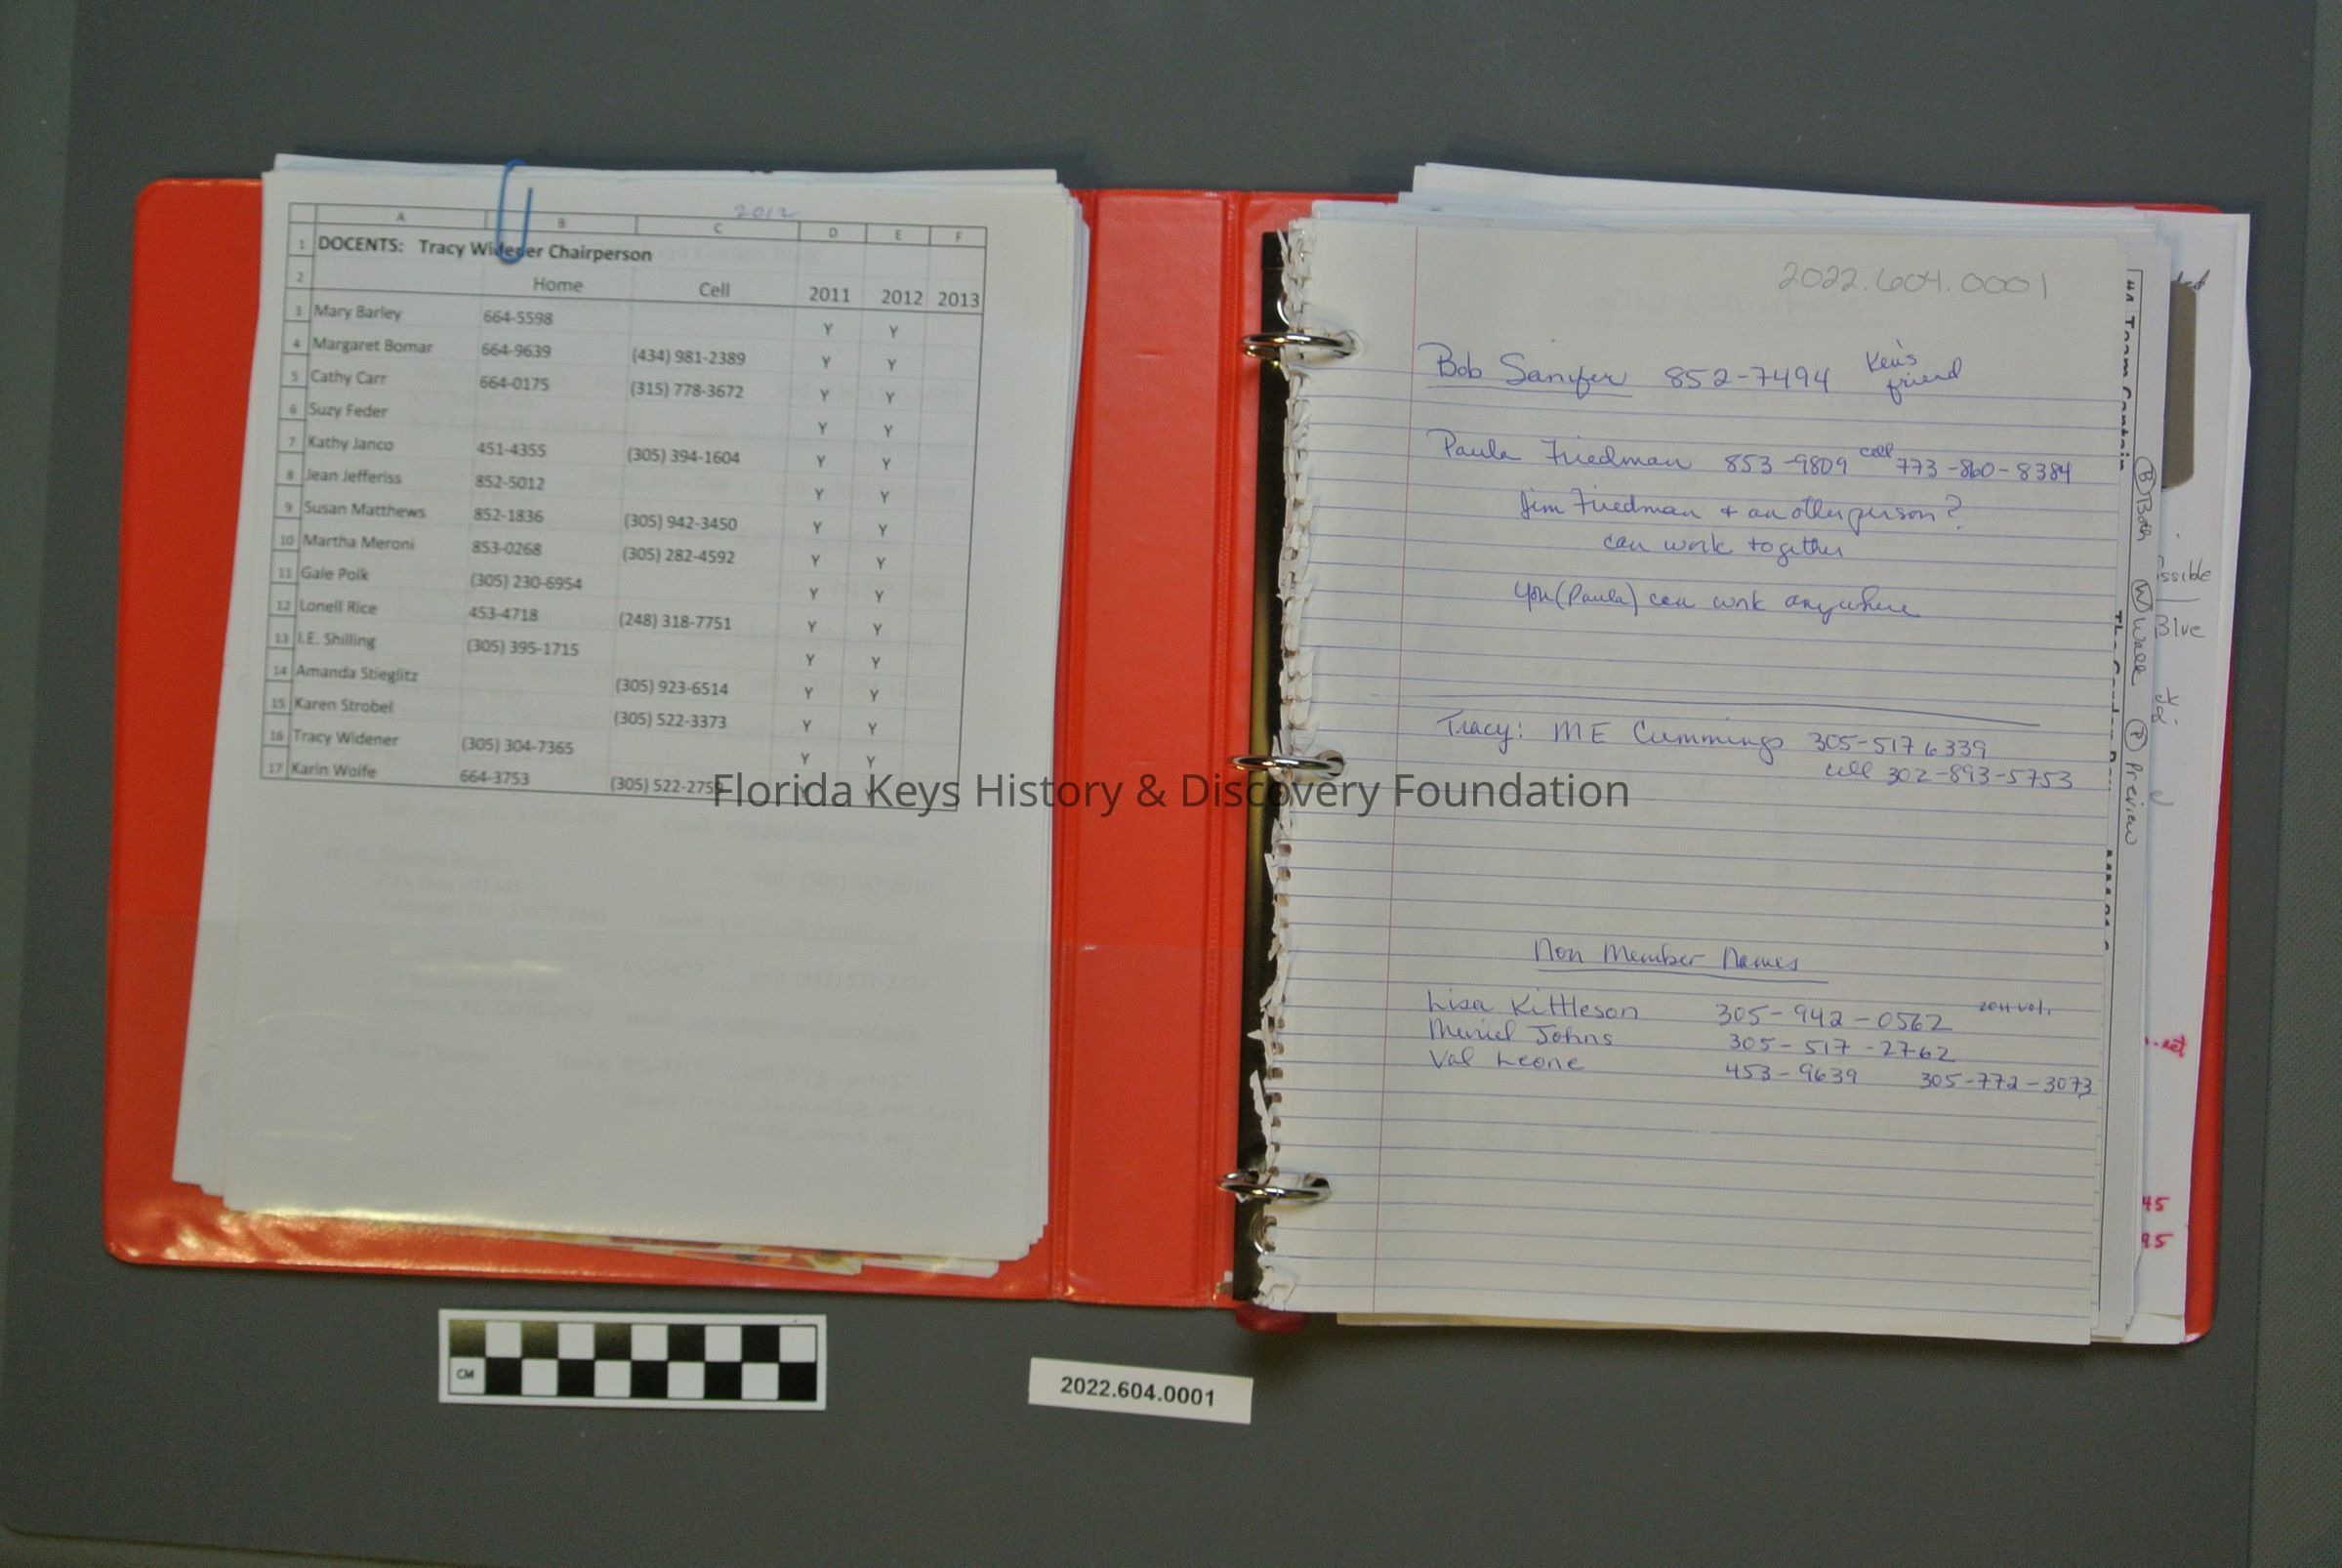 2012
A B C D E F
1 DOCENTS: Tracy Widener Chairperson
2 Home Cell 2011 2012 2013
3 Mary Barley 664-5598 Y Y
4 Margaret Bomar 664-9639 (434) 981-2389 Y Y
5 Cathy Carr 664-0175 (315) 778-3672 Y Y
6 Suzy Feder Y Y
7 Kathy Janco 451-4355 (305) 394-1604 Y Y
8 Jean Jefferiss 852-5012 Y Y
9 Susan Matthews 852-1836 (305) 942-3450 Y Y
10 Martha Meroni 853-0268 (305) 282-4592 Y Y
11 Gale Polk (305) 230-6954 Y Y
12 Lonell Rice 453-4718 (248) 318-7751 Y Y
13 I.E. Shilling (305) 395-1715 Y Y
14 Amanda Stieglitz (305) 923-6514 Y Y
15 Karen Strobel (305) 522-3373 Y Y
16 Tracy Widener (305) 304-7365 Y Y
17 Karin Wolfe 664-3753 (305) 522-2759 Y Y
2022.604.0001
Bob 852-7494 Ken's
friend
Paula Friedman 853-9809 cell 773-860-8384
Jim Friedman + another person?
can work together
You (Paula) can work anywhere
Tracy: ME Cummings 305-517 6339
cell 302-893-5753
Non Member Names
Lisa Kittleson 305-942-0562
Muriel Johns 305-517-2762
Val Leone 453-9639 305-772-3073
B Both W Walk P Preview
ssible
Blue
45
95
Florida Keys History & Discovery Foundation
CM
2022.604.0001